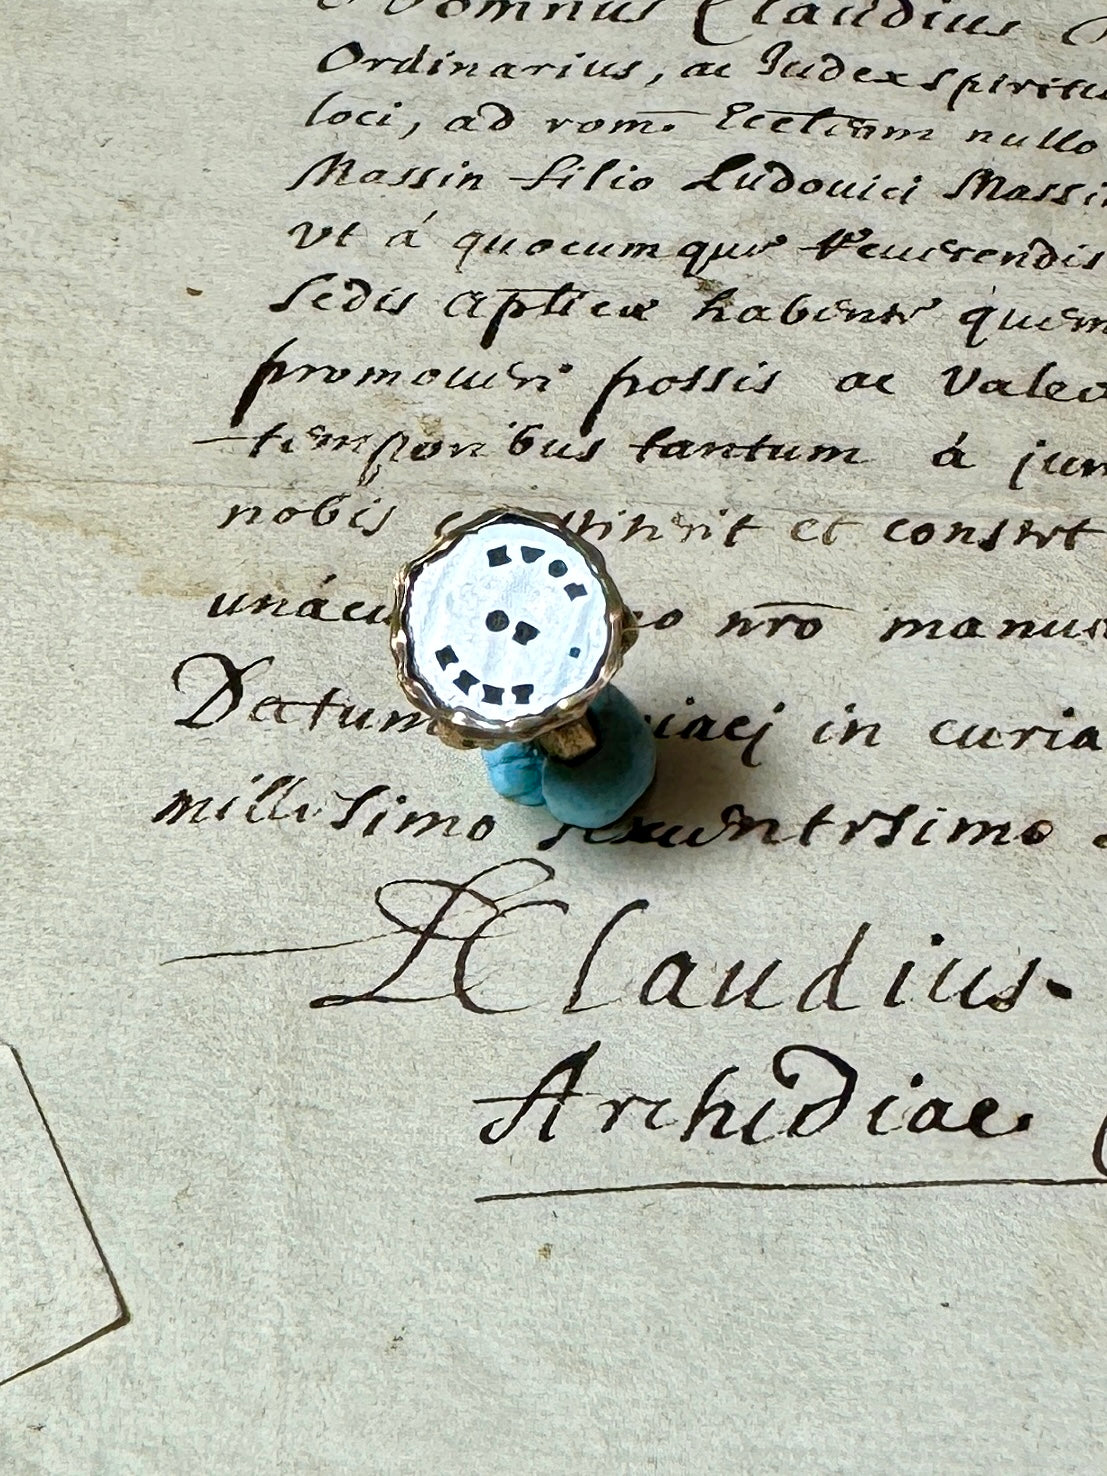 Domnus Claudius
Ordinarius, ac Judex spiritu
loci, ad rom. Eccliam nullo
Massin filio Ludouici Massi
vt á quocumque Reuerendis
Sedis Aplicæ habente quem
promoueri possis ac Valea
temporibus tantum á jur
nobis et constet
unácu nr̄o manu
Datum in curia
millesimo sexcentesimo
D Claudius.
Archidiac.